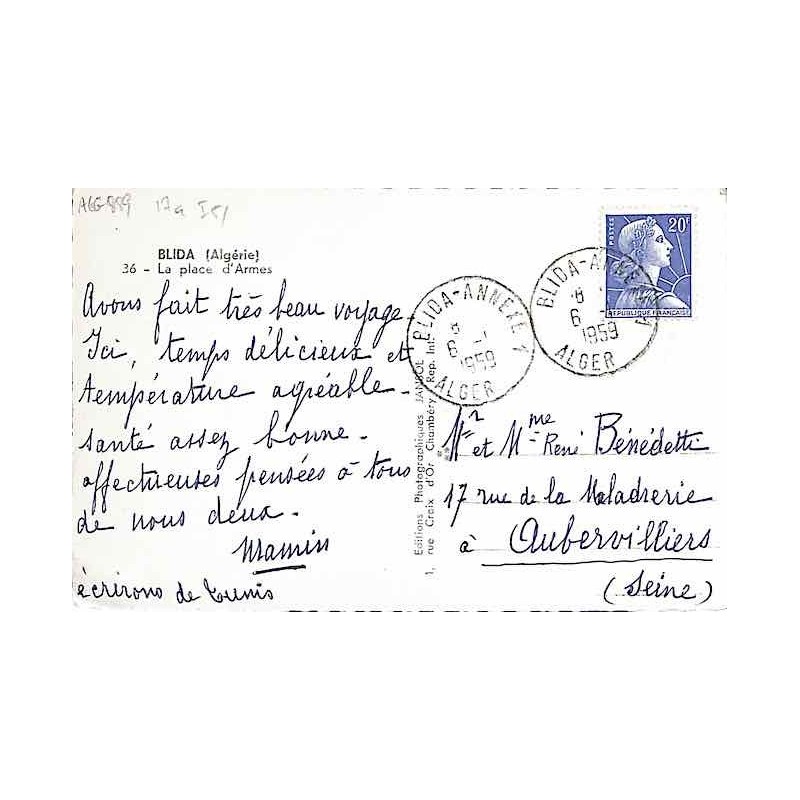 ALG-859 17a
BLIDA (Algérie)
36 - La place d'Armes
Avons fait très beau voyage.
Ici, temps délicieux et
température agréable.
santé assez bonne.
affectueuses pensées à tous
de nous deux.
Mamin
écrirons de Tunis
Editions Photographiques JANSOL
1, rue Croix d'Or Chambéry Rep. Int.
BLIDA-ANNEXE 1
6 -1
1959
ALGER
BLIDA-ANNEXE 1
6
1959
ALGER
POSTES
20F
REPUBLIQUE FRANÇAISE
Mr et Mme René Bénédetti
17 rue de la Maladrerie
à Aubervilliers
(Seine)